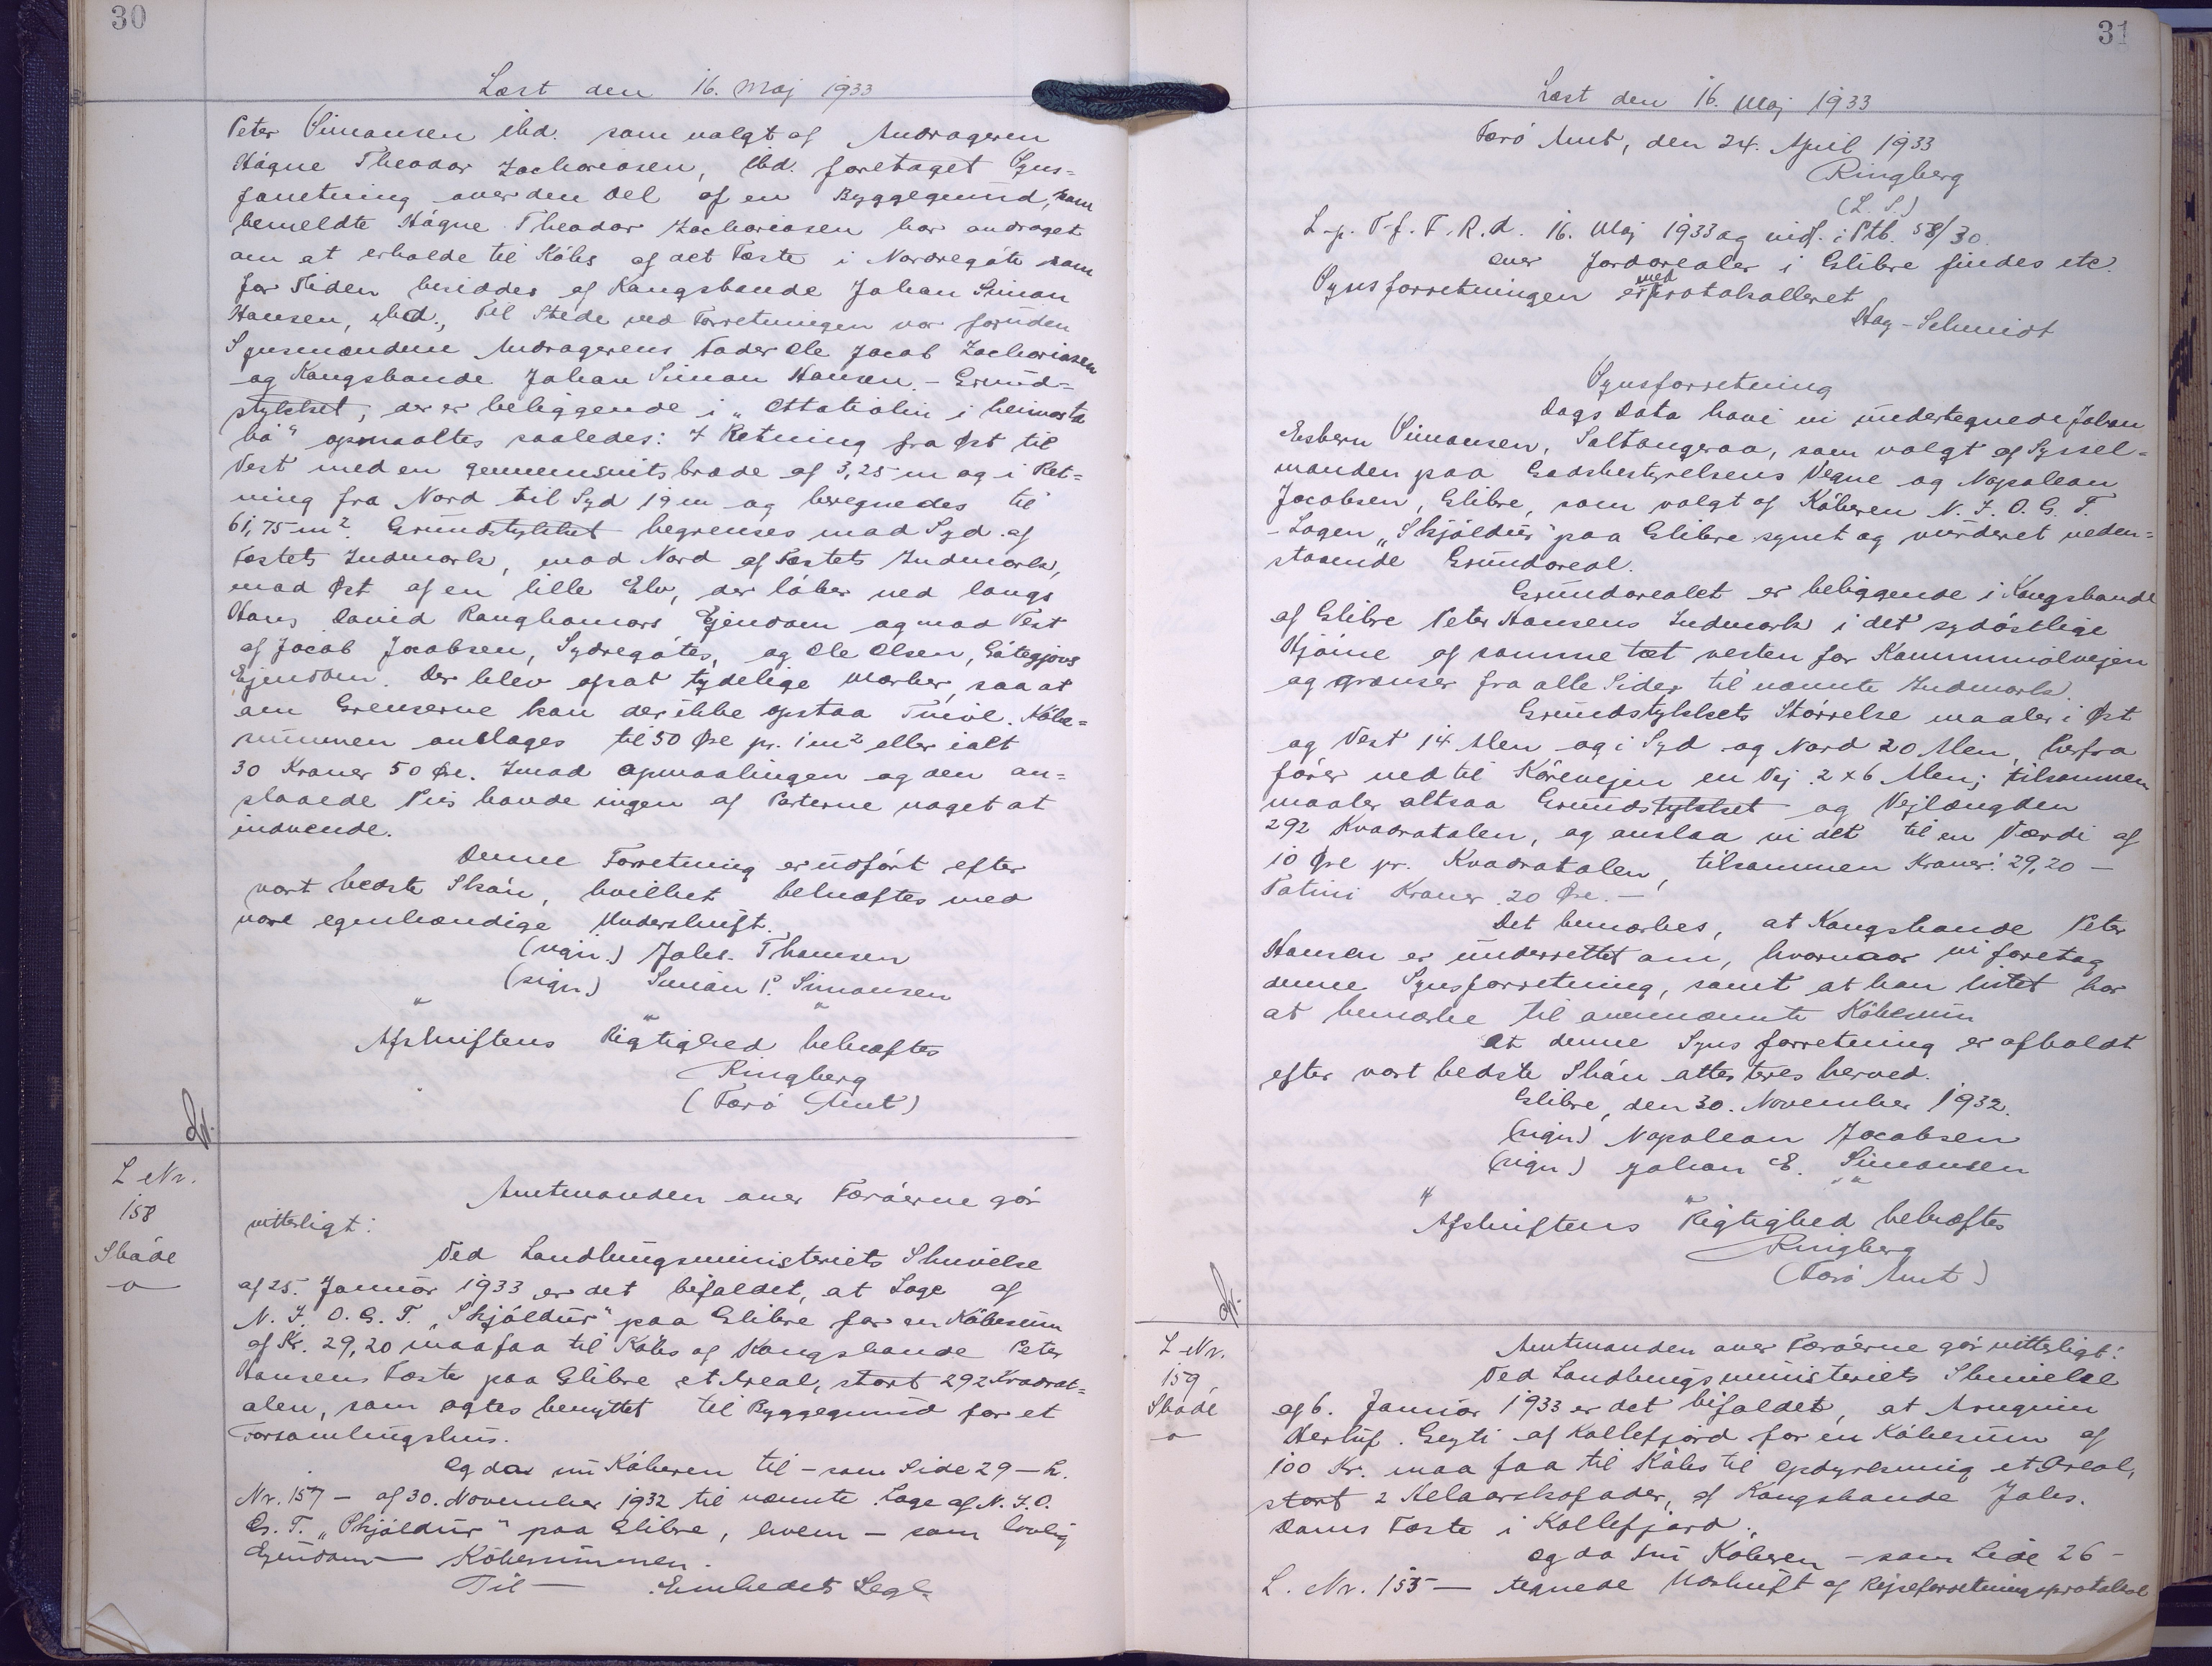 30
Læst den 16. Maj 1933
Peter Simonsen ibd. som valgt af Andrageren
Høgne Theodor Zachariasen, ibd. foretaget Syns-
forretning over den Del af en Byggegrund, som
bemeldte Høgne Theodor Zachariasen har andraget
om at erholde til Købs af det Fæste i Nordregöte som
for Tiden besiddes af Kongsbonde Johan Simon
Hansen, ibd., Til Stede ved Forretningen var foruden
Synsmændene Andragerens Fader Ole Jacob Zachariasen
og Kongsbonde Johan Simon Hansen. - Grund-
stykket, der er beliggende i „Ottatiolin i heimasta
bø" opmaaltes saaledes: I Retning fra Øst til
Vest med en gennemsnitsbrede af 3,25 m og i Ret-
ning fra Nord til Syd 19 m og beregnedes til
61,75 m². Grundstykket begrenses mod Syd af
Fæstets Indmark, mod Nord af Fæstets Indmark,
mod Øst af en lille Elv, der løber ned langs
Hans David Ranghamars Ejendom og mod Vest
af Jacob Jacobsen, Sydregöte, og Ole Olsen, Gøtegjovs
Ejendom. Der blev opsat tydelige Mærker, saa at
om Grenserne kan der ikke opstaa Tvivl. Købe-
summen ansloges til 50 Øre pr. 1 m² eller ialt
30 Kroner 50 Øre. Imod Opmaalingen og den an-
slaaede Pris havde ingen af Parterne noget at
indvende.
Denne Forretning er udført efter
vort bedste Skøn, hvilket bekræftes med
vore egenhændige Underskrift.
(sign.) Johs. Thomsen
(sign.) Simon P. Simonsen
" " "
Afskriftens Rigtighed bekræftes
Ringberg
(Færø Amt)
L. Nr.
158
Skøde
Amtmanden over Færøerne gør
vitterligt:
Ved Landbrugsministeriets Skrivelse
af 25. Januar 1933 er det bifaldet, at Loge af
N. I. O. G. T. „Skjöldur" paa Glibre for en Købesum
af Kr. 29,20 maa faa til Købs af Kongsbonde Peter
Hansens Fæste paa Glibre et Areal, stort 292 Kvadrat-
alen, som agtes benyttet til Byggegrund for et
Forsamlingshus.
Og da nu Køberen til - som Side 29 - L.
Nr. 157 - af 30. November 1932 til nævnte Loge af N. I. O.
G. T. „Skjöldur" paa Glibre, hvem - som lovlig
Ejendom - Købesummen.
Til - Embedets Segl.
31
Læst den 16. Maj 1933
Færø Amt, den 24. April 1933
Ringberg
(L. S.)
L. p. T. f. F. R. d. 16. Maj 1933 og indf. i Ptb. 58/30.
over Jordarealer i Glibre findes etc.
Synsforretningen er med protokolleret
Hag-Schmidt
Synsforretning
Dags Dato have vi undertegnede Johan
Esbern Simonsen, Saltangeraa, som valgt af Syssel-
manden paa Godsbestyrelsens Vegne og Napoleon
Jacobsen, Glibre, som valgt af Køberen N. I. O. G. T.
- Logen „Skjöldur" paa Glibre synet og vurderet neden-
staaende Grundareal.
Grundarealet er beliggende i Kongsbonde
af Glibre Peter Hansens Indmark i det sydøstlige
Hjørne af samme tæt vesten for Kommunalvejen
og grænser fra alle Sider til nævnte Indmark.
Grundstykkets Størrelse maaler i Øst
og Vest 14 Alen og i Syd og Nord 20 Alen, herfra
fører ned til Kørevejen en Vej 2 x 6 Alen; tilsammen
maaler altsaa Grundstykket og Vejlængden
292 Kvadratalen, og anslaa vi det til en Værdi af
10 Øre pr. Kvadratalen, tilsammen Kroner: 29,20 -
Totini Kroner 20 Øre. -
Det bemærkes, at Kongsbonde Peter
Hansen er underrettet om, hvornaar vi foretog
denne Synsforretning, samt at han intet har
at bemærke til ovennævnte Købesum
At denne Synsforretning er afholdt
efter vort bedste Skøn attesteres herved.
Glibre, den 30. November 1932.
(sign) Napoleon Jacobsen
(sign) Johan E. Simonsen
" " "
Afskriftens Rigtighed bekræftes
Ringberg
(Færø Amt)
L. Nr.
159
Skøde
Amtmanden over Færøerne gør vitterligt:
Ved Landbrugsministeriets Skrivelse
af 6. Januar 1933 er det bifaldet, at Arngrim
Herluf Geyti af Kollefjord for en Købesum af
100 Kr. maa faa til Købs til Opdyrkning et Areal,
stort 2 Kelaarskofoder, af Kongsbonde Johs.
Dams Fæste i Kollefjord.
Og da nu Køberen - som Side 26 -
L. Nr. 155 - tegnede Udskrift af Rejseforretningsprotokol